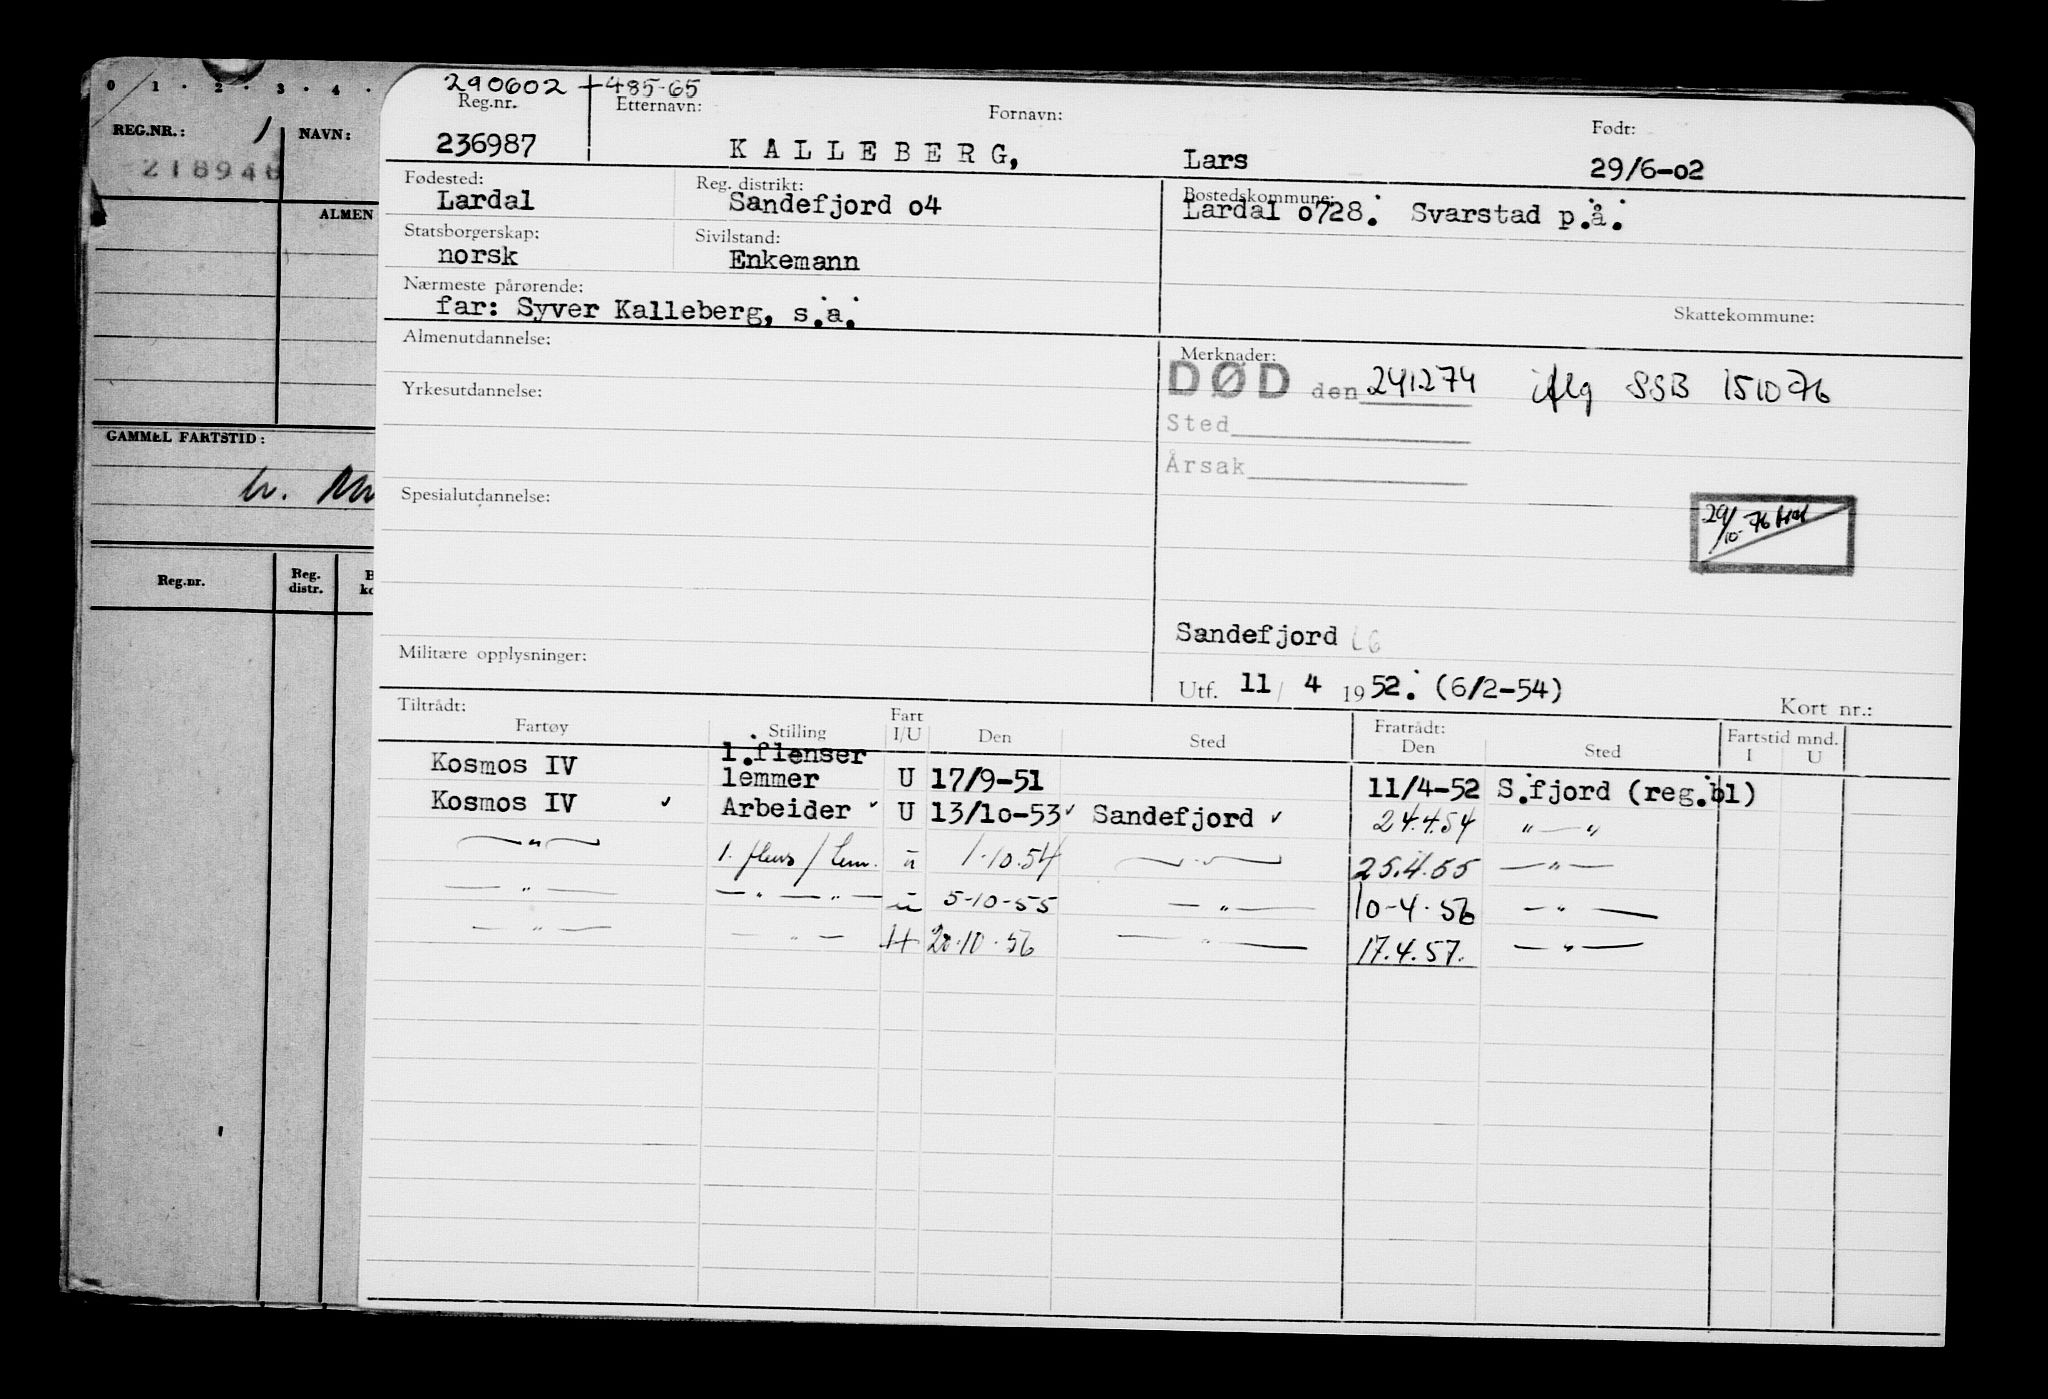 0 1 . 2 . 3 . 4 .
REG.NR.: 1 NAVN:
218948
ALMEN
GAMMEL FARTSTID:
Reg.nr. Reg. distr.
290602 485-65
Reg.nr. Etternavn: Fornavn: Født:
236987 KALLEBERG, Lars 29/6-02
Fødested: Reg. distrikt: Bostedskommune:
Lardal Sandefjord o4 Lardal o728. Svarstad p.å.
Statsborgerskap: Sivilstand:
norsk Enkemann
Nærmeste pårørende:
far: Syver Kalleberg, s.a.
Skattekommune:
Almenutdannelse:
Merknader:
DØD den 241274 iflg SSB 151076
Yrkesutdannelse:
Sted
Årsak
Spesialutdannelse:
29/10-76
Sandefjord
Militære opplysninger:
Utf. 11/ 4 1952. (6/2-54) Kort nr.:
Tiltrådt: Fratrådt:
Fartøy Stilling Fart I/U Den Sted Den Sted Fartstid mnd. I U
Kosmos IV 1.flenser lemmer U 17/9-51 11/4-52 S.fjord (reg.bl)
Kosmos IV ✓ Arbeider ✓ U 13/1o-53 ✓ Sandefjord ✓ 24.4.54 " — "
— " — 1. flens / Lem. u 1-10.54 — " — 25.4.55 — " —
— " — — " — " — u 5-10-55 — " — 10-4-56 — " —
— " — — " — H 20.10.56 — " — 17.4.57. — " —